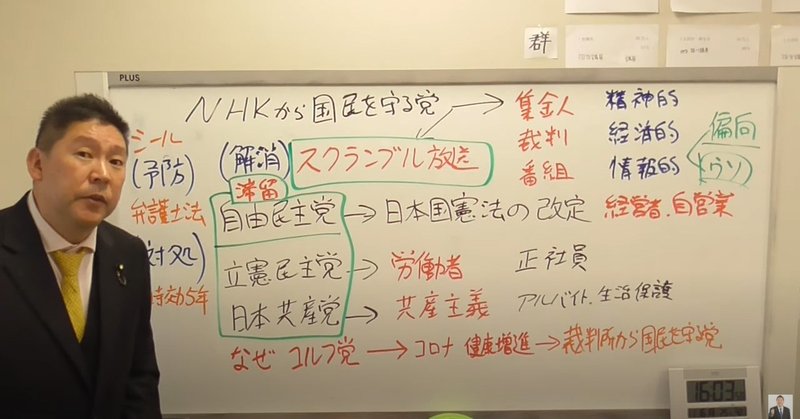 群
PLUS
NHKから国民を守る党 → 集金人 精神的
シール 裁判 経済的 偏向
(予防) (解消) スクランブル放送 番組 情報的 (ウソ)
滞留
弁護士法 自由民主党 → 日本国憲法の改定 経営者、自営業
対処)
立憲民主党 → 労働者 正社員
時効5年 日本共産党 → 共産主義 アルバイト、生活保護
なぜ ゴルフ党 → コロナ 健康増進 → 裁判所から国民を守る党
16:03